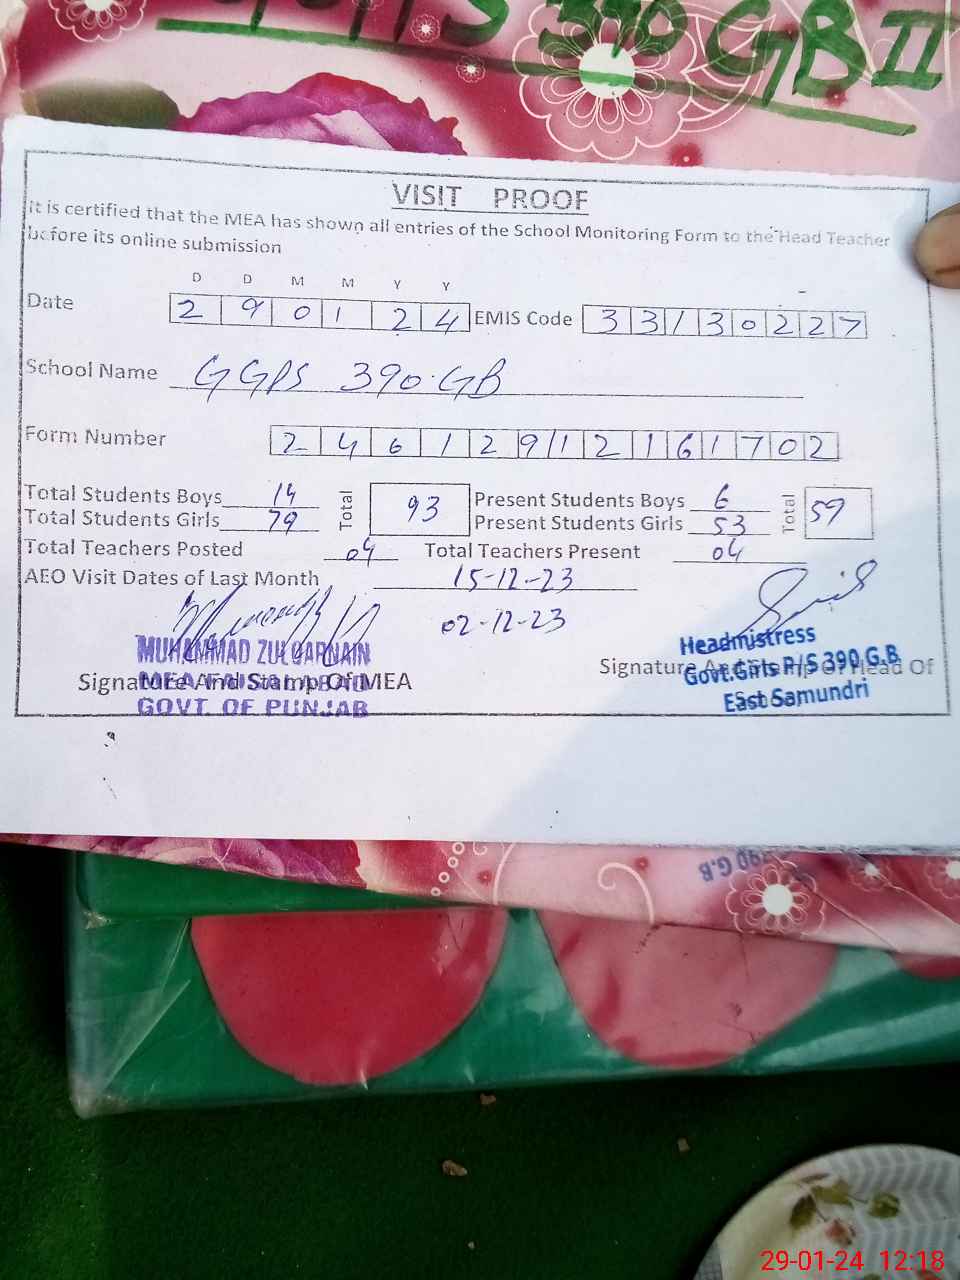 390 GB II
VISIT PROOF
It is certified that the MEA has shown all entries of the School Monitoring Form to the Head Teacher
before its online submission
D D M M Y Y
Date 2 9 0 1 2 4 EMIS Code 3 3 1 3 0 2 2 7
School Name GGPS 390 GB
Form Number 2 4 6 1 2 9 1 2 1 6 1 7 0 2
Total Students Boys 14 Total 93 Present Students Boys 6 Total 59
Total Students Girls 79 Present Students Girls 53
Total Teachers Posted 04 Total Teachers Present 04
AEO Visit Dates of Last Month 15-12-23
02-12-23
MUHAMMAD ZULQARNAIN
MEA FAISALABAD
GOVT. OF PUNJAB
Signature And Stamp Of MEA
Headmistress
Govt. Girls P/S 390 G.B
East Samundri
Signature And Stamp Of Head Of
390 G.B
29-01-24 12:18